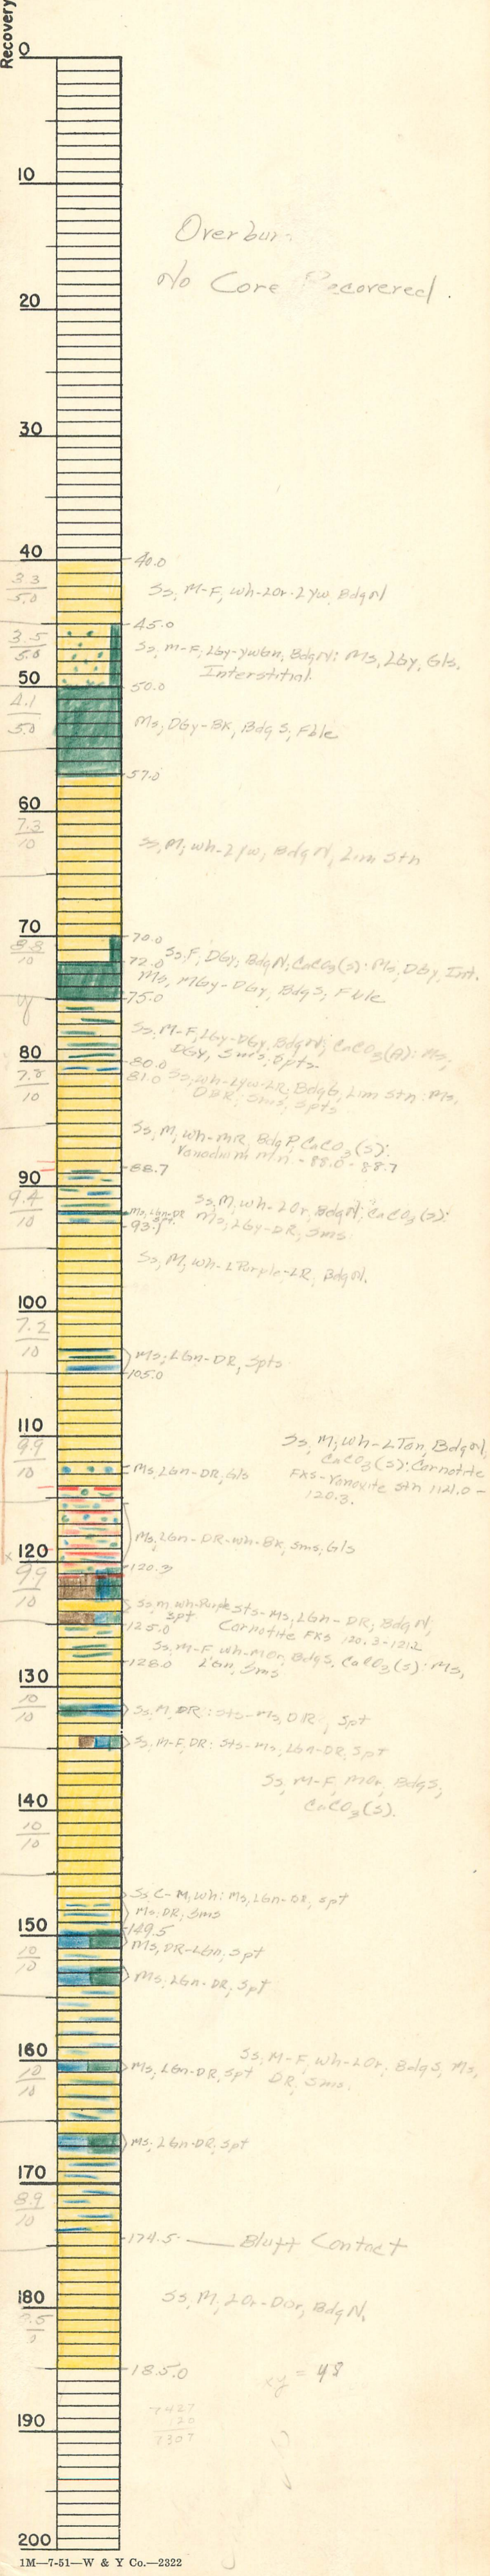 Recovery
0
10
Overbur
No Core Recovered.
20
30
40
40.0
3.3
5.0
Ss, M-F, wh-LOr-Lyw, BdgN
45.0
3.5
5.0
Ss, M-F, LGy-ywGn, BdgN: Ms, LGy, Gls.
Interstitial.
50
50.0
4.1
5.0
Ms, DGy-BK, BdgS, Fble
57.0
60
7.3
10
Ss, M, wh-Lyw, BdgN, Lim Stn
70
70.0
8.8
10
Ss, F, DGy, BdgN, CaCO3(s): Ms, DGy, Int.
72.0
Ms, MGy-DGy, BdgS, Fble
75.0
Ss, M-F, LGy-DGy, BdgN, CaCO3(A): Ms,
DGy, Sms, Spts.
80
80.0
7.8
10
81.0
Ss, wh-Lyw-LR, BdgG, Lim Stn: Ms,
DBR, Sms, Spts
Ss, M, wh-MR, BdgP, CaCO3(s):
Vanadium Min - 88.0 - 88.7
88.7
90
9.4
10
Ms, LGn-DR
93.1
Ss, M, wh-LOr, BdgN, CaCO3(s):
Ms, LGy-DR, Sms
Ss, M, wh-LPurple-LR, BdgN.
100
7.2
10
Ms, LGn-DR, Spts
105.0
110
9.9
10
Ss, M, wh-LTan, BdgN,
CaCO3(s): Carnotite
FKS-Vanoxite Stn 1121.0-
120.3.
Ms, LGn-DR, Gls
Ms, LGn-DR-wh-BK, Sms, Gls
120
120.3
9.9
10
Ss, M, wh-Purple Sts-Ms, LGn-DR, BdgN,
Spt Carnotite FKS 120.3-121.2
125.0
Ss, M-F, wh-MOr, BdgS, CaCO3(s): Ms,
LGn, Sms
128.0
130
10
10
Ss, M, DR: Sts-Ms, DR, Spt
Ss, M-F, DR: Sts-Ms, LGn-DR, Spt
Ss, M-F, MOr, BdgS,
CaCO3(s).
140
10
10
Ss, C-M, wh: Ms, LGn-DR, Spt
Ms, DR, Sms
149.5
150
10
10
Ms, DR-LGn, Spt
Ms, LGn-DR, Spt
160
10
10
Ms, LGn-DR, Spt
Ss, M-F, wh-LOr, BdgS, Ms,
DR, Sms.
Ms, LGn-DR, Spt
170
8.9
10
174.5 — Bluff Contact
180
Ss, M, LOr-DOr, BdgN.
185.0
xy = 48
7427
120
7307
190
200
1M—7-51—W & Y Co.—2322